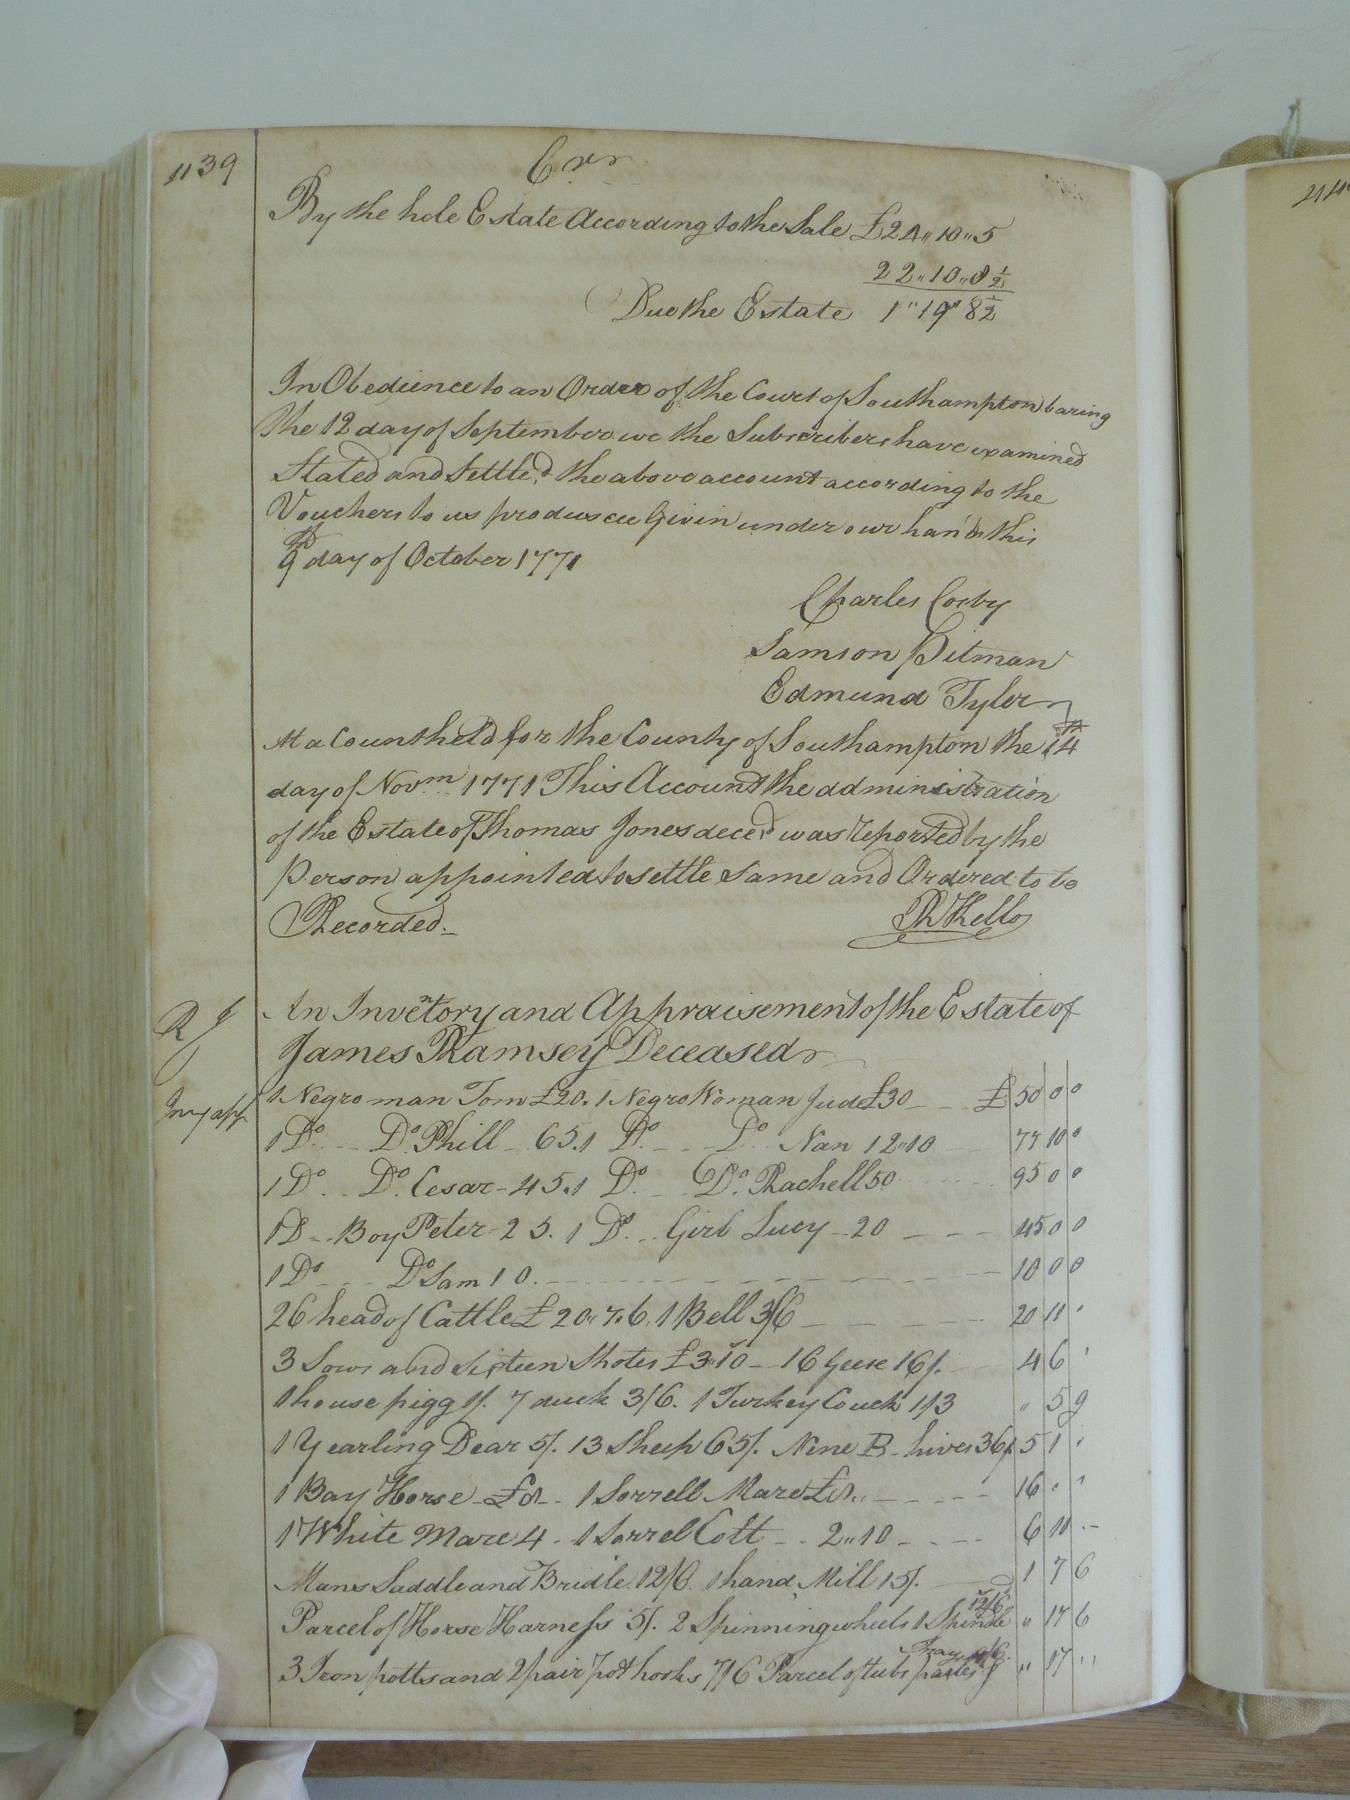 439
Crr
By the hole Estate According to the Sale £24,,10,,5
22,,10,,8½
Due the Estate 1,,19,,8½
In Obedience to an Order of the Court of Southampton baring
the 12 day of September we the Subscribers have examined
Stated and Settle,d the above account according to the
Vouchers to us produscee Givin under our han'ds this
9th day of October 1771
Charles Cosby
Samson Pitman
Edmund Tyler
At a Count held for the County of Southampton the 14th
day of Novm 1771 This Account the administration
of the Estate of Thomas Jones decd was reported by the
Person appointed to settle Same and Ordered to be
Recorded.
R Kello
R J
Invy app
An Inventory and Appraisement of the Estate of
James Ramsey Deceased
1 Negro man Tom £20. 1 Negro Woman Jude £30 £ 50 0 0
1 Do. Do. Phill 65. 1 Do. Do. Nan 12,,10 77 10 0
1 Do. Do. Cesar 45. 1 Do. Do. Rachell 50 95 0 0
1 D Boy Peter 25. 1 Do. Girl Lucy 20 45 0 0
1 Do Do Sam 10. 10 0 0
26 head of Cattle £20,,7,,6. 1 Bell 3/6 20 11 "
3 Sows and Sixteen Shotes £3,,10 16 Geese 16/. 4 6 "
1 house pigg 1/. 7 duck 3/6. 1 Turkey Couck 1/3 " 5 9
1 Yearling Dear 5/. 13 Sheep 65/. Nine B-hives 36/. 5 1 "
1 Bay Horse £8 1 Sorrell Mare £8 16 " "
1 White Mare 4 1 Sorrel Colt 2,,10 6 10 -
Mans Saddle and Bridle 12/6. 1 hand Mill 15/. 1 7 6
Parcel of Horse Harness 5/. 2 Spinning wheels 1 Spindle 12/6 " 17 6
3 Iron potts and 2 pair pot hooks 7/6 Parcel of tubs pailes & Tray 9/6. " 17 "